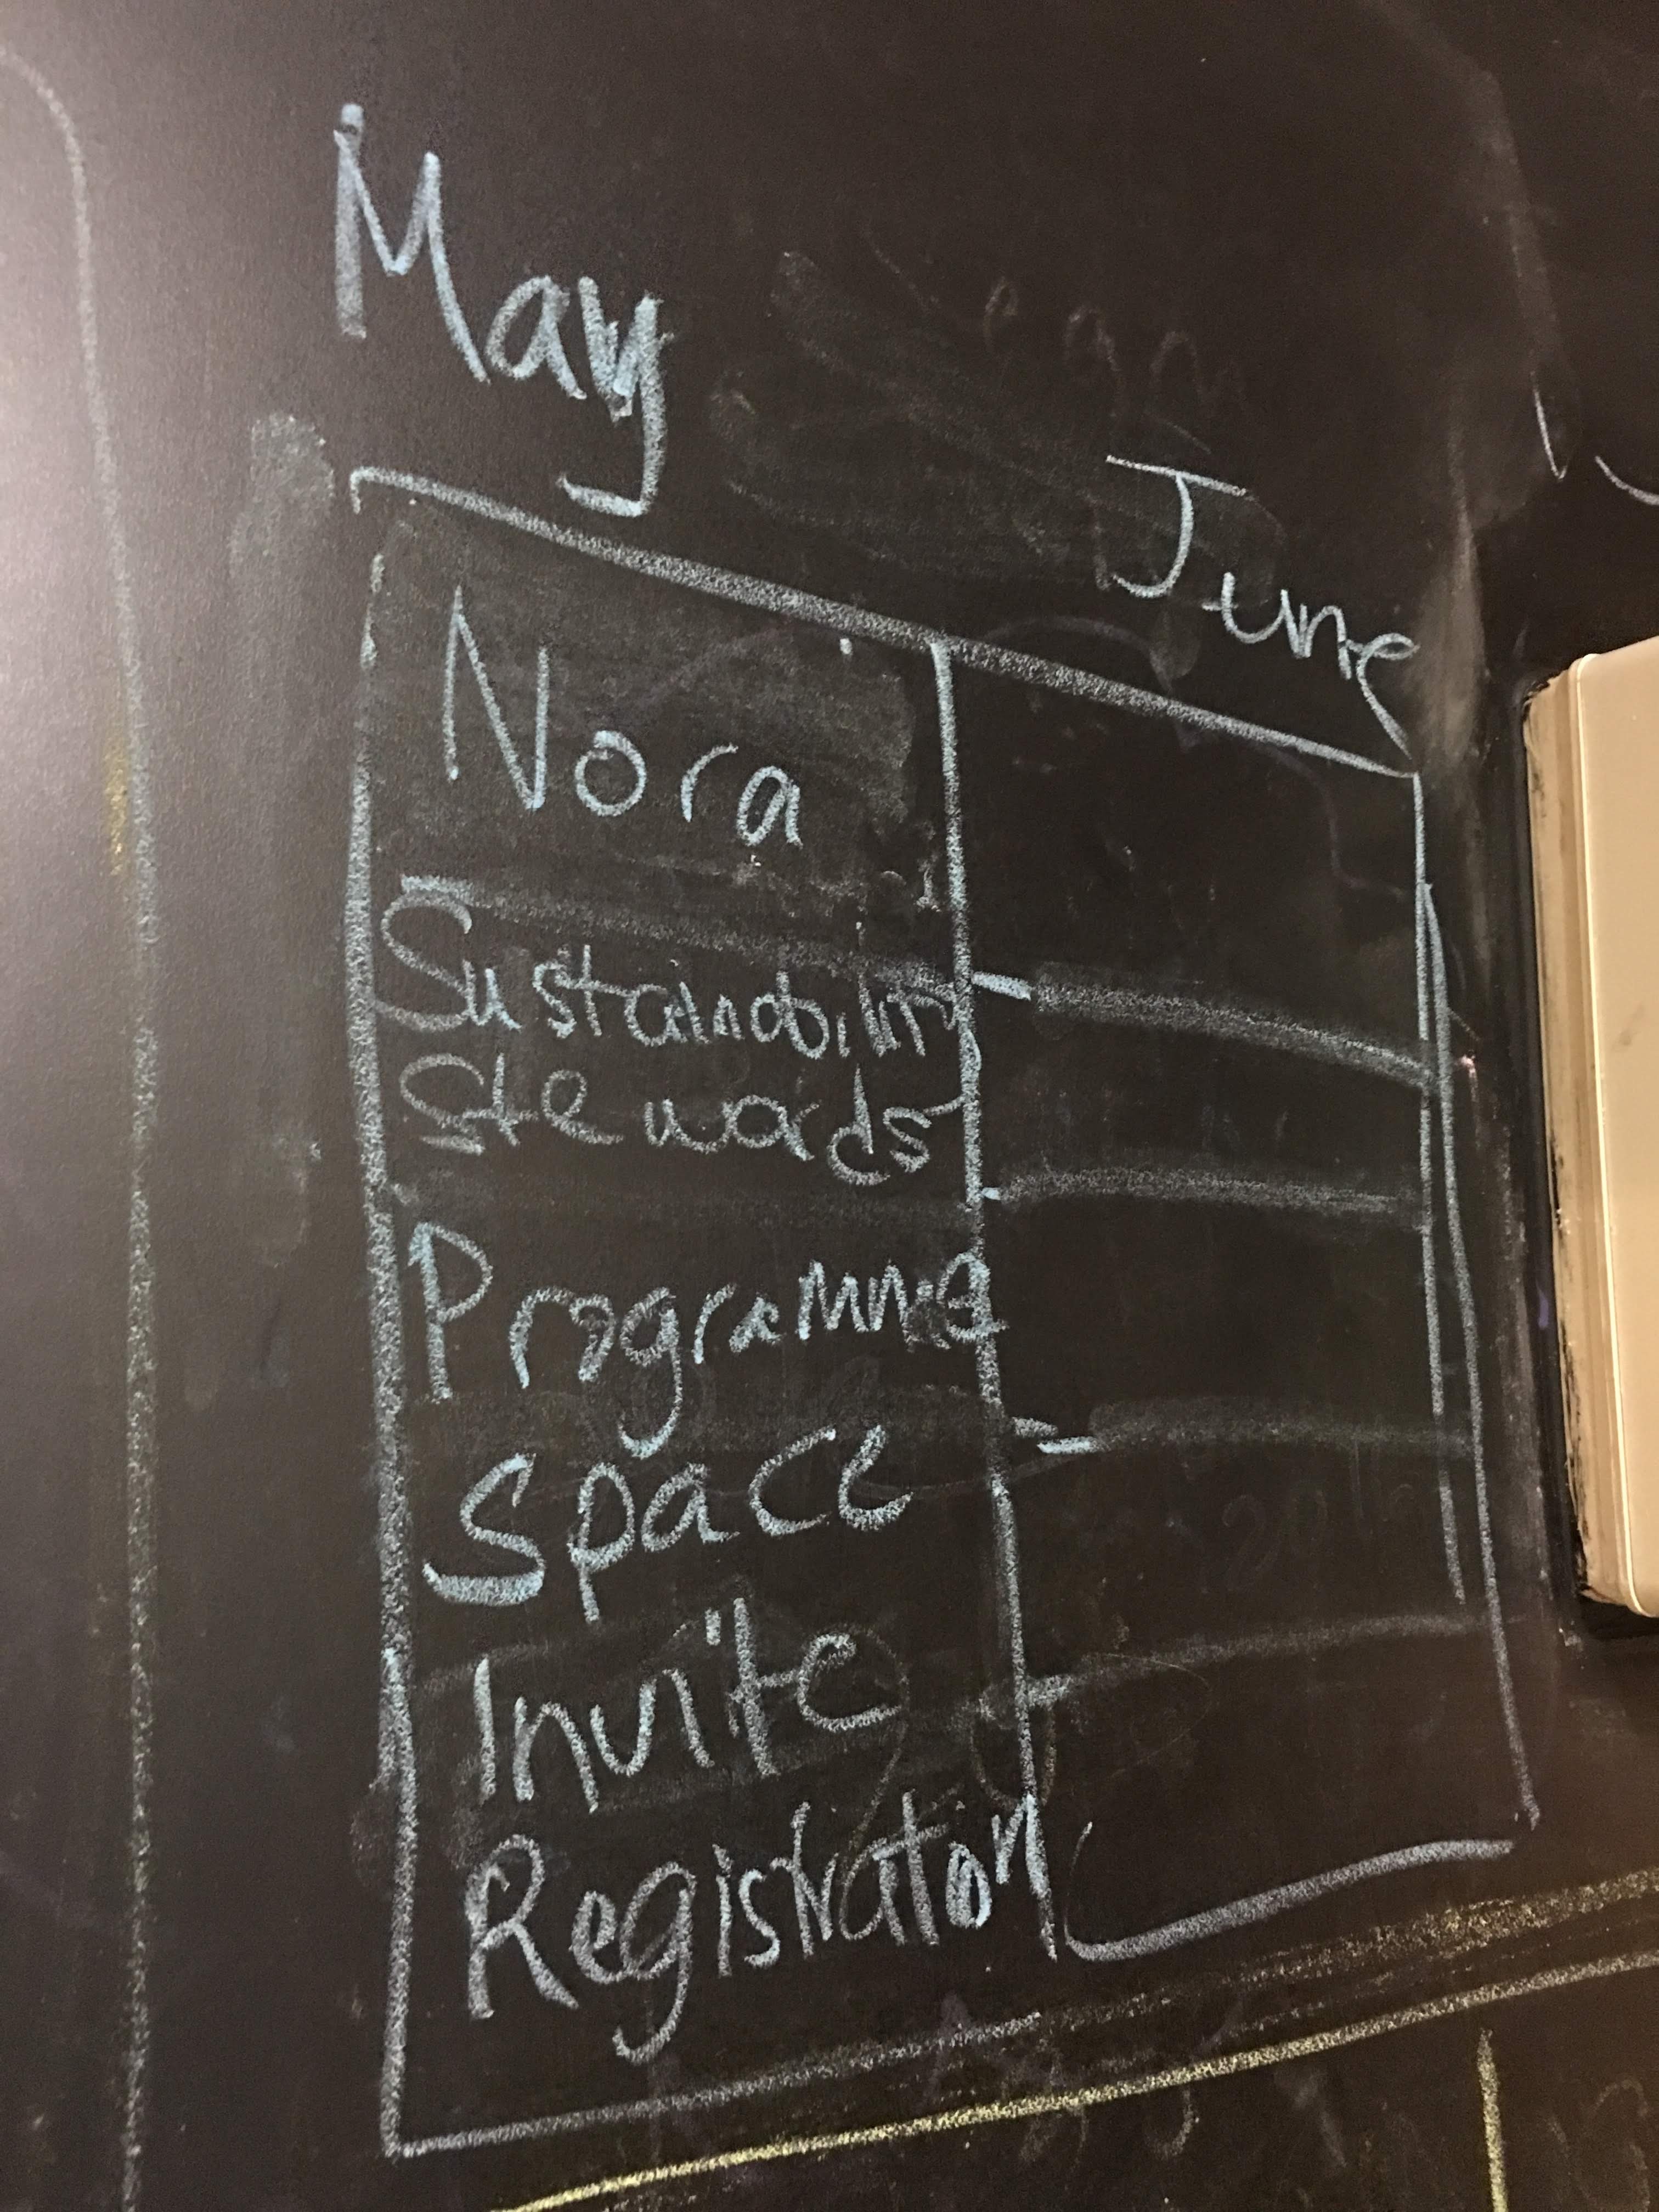 May
June
Nora
Sustainability
Stewads
Programme
Space
Invite
Registraton